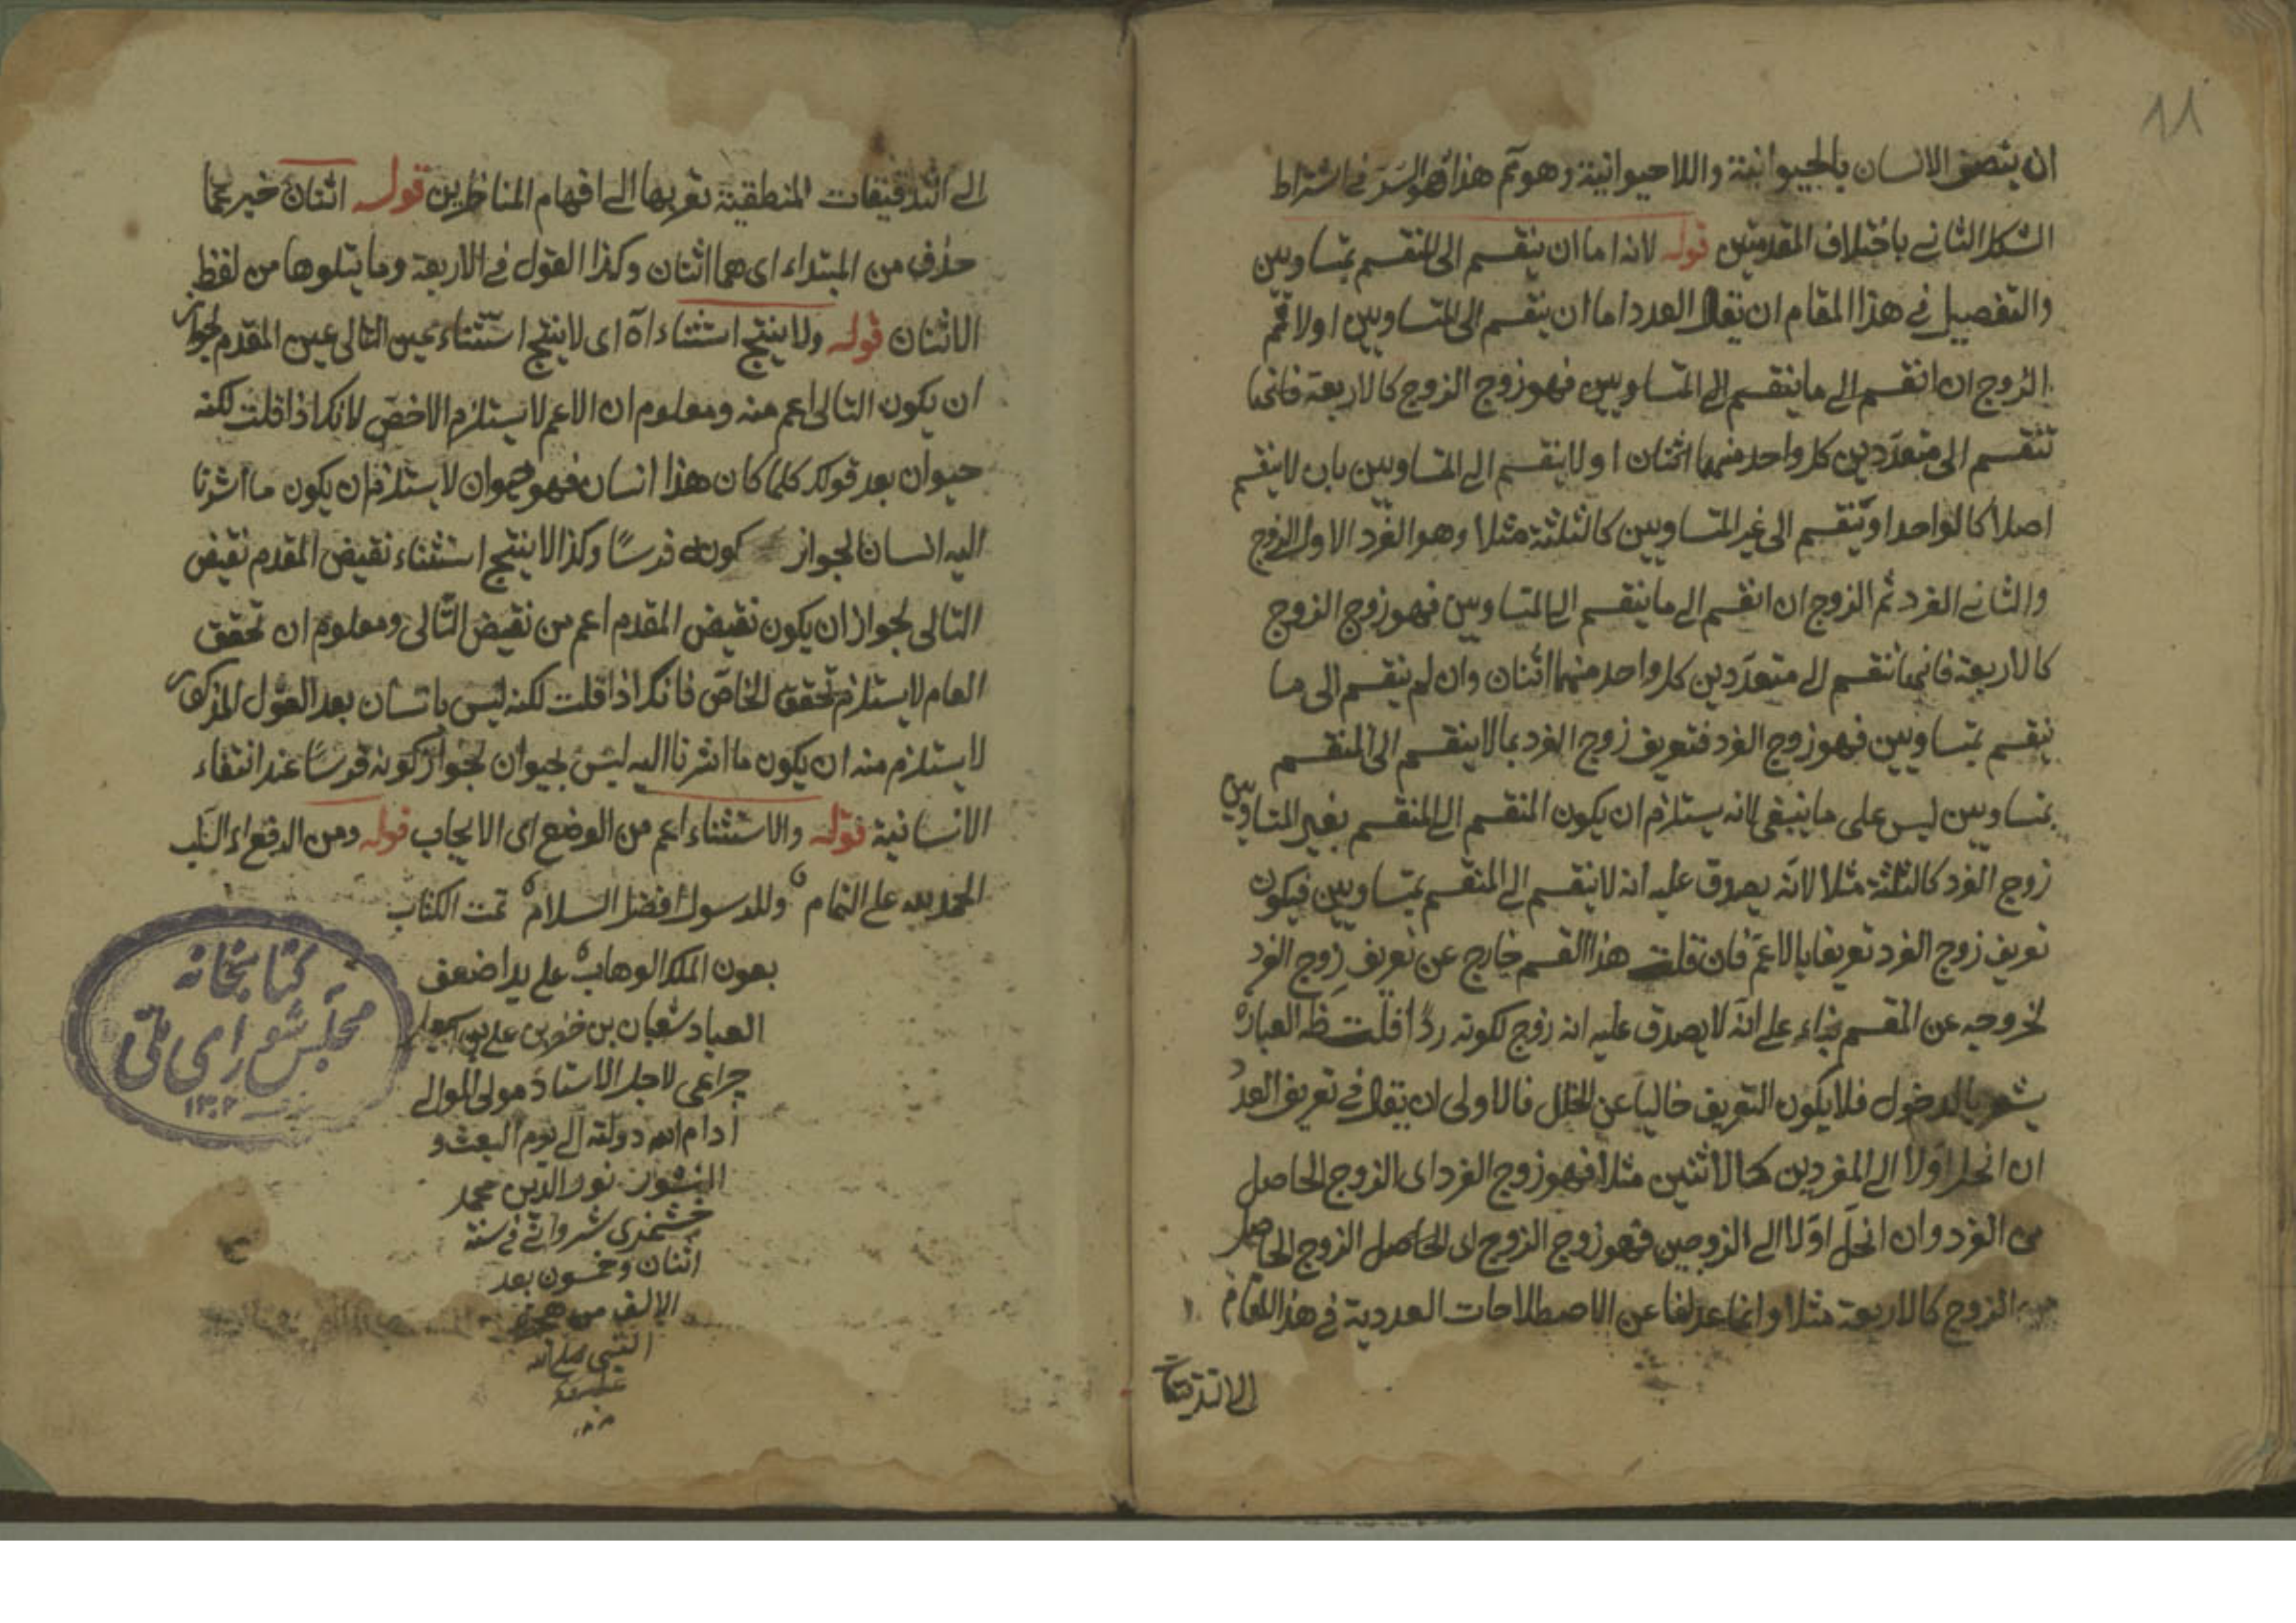 11
ان يتصف الانسان بالحيوانية واللاحيوانية وهو تم هذا هو السر في اشتراط
الشكل الثاني باختلاف المقدمتين قوله لانه اما ان ينقسم الى المنقسم بمتساويين
والتفصيل في هذا المقام ان نقل العدد اما ان ينقسم الى المتساويين اولا ثم
الزوج ان انقسم الى ما ينقسم الى المتساويين فهو زوج الزوج كالاربعة فانها
تنقسم الى متعددين كل واحد منهما اثنان او لا ينقسم الى المتساويين بان لا ينقسم
اصلا كالواحد او ينقسم الى غير المتساويين كالثلثة مثلا وهو الفرد الاول الزوج
والثاني الفرد ثم الزوج ان انقسم الى ما ينقسم الى المتساويين فهو زوج الزوج
كالاربعة فانها تنقسم الى متعددين كل واحد منهما اثنان وان لم ينقسم الى ما
ينقسم بمتساويين فهو زوج الفرد فتعريف زوج الفرد بما لا ينقسم الى المنقسم
بمتساويين ليس على ما ينبغي لانه يستلزم ان يكون المنقسم الى المنقسم بغير المتساويين
زوج الفرد كالثلثة مثلا لانه يصدق عليه انه لا ينقسم الى المنقسم بمتساويين فيكون
تعريف زوج الفرد تعريفا بالاعم فان قلت هذا القسم خارج عن تعريف زوج الفرد
لخروجه عن المقسم بناء على انه لا يصدق عليه انه زوج لكونه ردا قلت ظه العبارة
يشعر بالدخول فلا يكون التعريف خاليا عن الخلل فالاولى ان يقال في تعريف العدد
ان انحل اولا الى المفردين كالاثنين مثلا فهو زوج الفرد اي الزوج الحاصل
من الفرد وان انحل اولا الى الزوجين فهو زوج الزوج اي الحاصل الزوج الحاصل
الزوج كالاربعة مثلا وانما عدلنا عن الاصطلاحات العددية في هذا المقام
الى التدقيقات
الى التدقيقات المنطقية تقريبها الى افهام المناظرين قوله اثنان خبر عما
حذف من المبتداء اي هما اثنان وكذا القول في الاربعة وما يتلوها من لفظ
الاثنان قوله ولا ينتج استثناء اه اي لا ينتج استثناء عين التالى عين المقدم لجواز
ان يكون التالى اعم منه ومعلوم ان الاعم لا يستلزم الاخص لانك اذا قلت لكنه
حيوان بعد قولك كلما كان هذا انسان فهو حيوان لا يستلزم ان يكون ما اشرنا
اليه انسان لجواز كونه فرسا وكذا لا ينتج استثناء نقيض المقدم نقيض
التالى لجواز ان يكون نقيض المقدم اعم من نقيض التالى ومعلوم ان تحقق
العام لا يستلزم تحقق الخاص فانك اذا قلت لكنه ليس بانسان بعد القول المذكور
لا يستلزم منه ان يكون ما اشرنا اليه ليس بحيوان لجواز كونه فرسا عند انتفاء
الانسانية قوله والاستثناء اعم من الوضع اى الايجاب قوله ومن الدفع اى السلب
الحمد لله على التمام وللرسول افضل السلام تمت الكتاب
بعون الملك الوهاب على يد اضعف
العباد شعبان بن خضر بن على بن
چراغى لاجل الاستاد مولى الموالى
ادام الله دولته الى يوم البعث و
النشور نور الدين محمد
شروانى في سنة
اثنان وخمسون بعد
الالف من هجرة
النبي صلى الله
عليه
كتابخانه
مجلس شوراى ملى
١٣٠٢